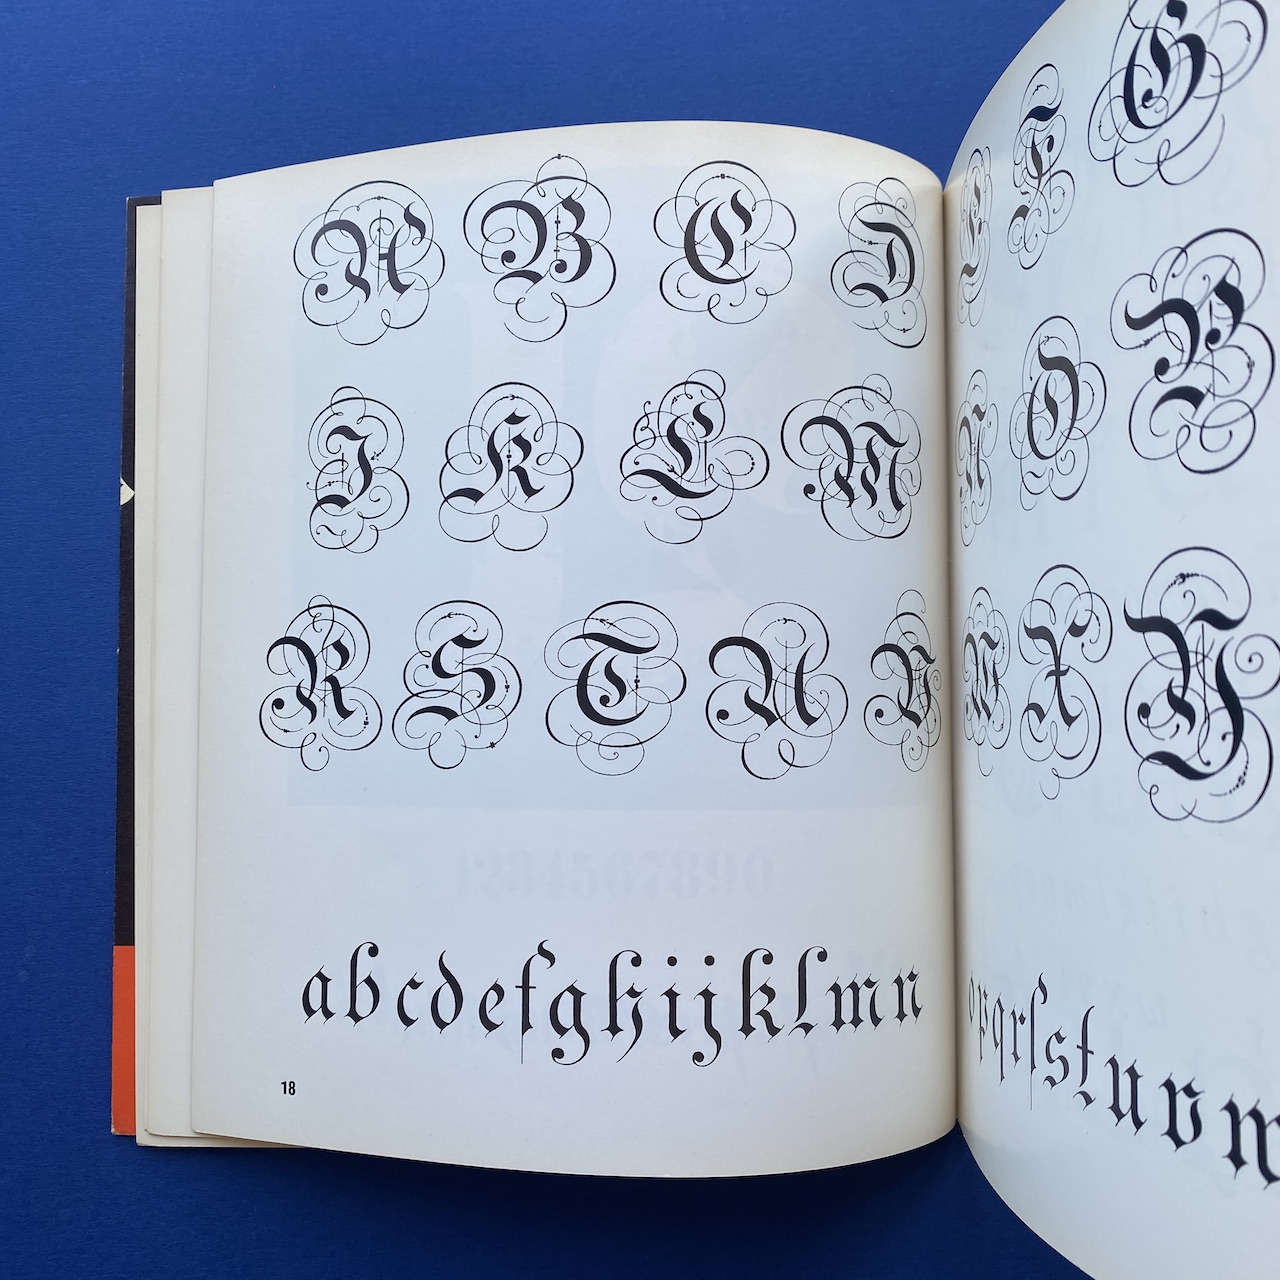 A B C D
I K L M
R S T U V
1234567890
abcdefghijklmn
18
E F G
N O P
W X Y
opqrſstuvw